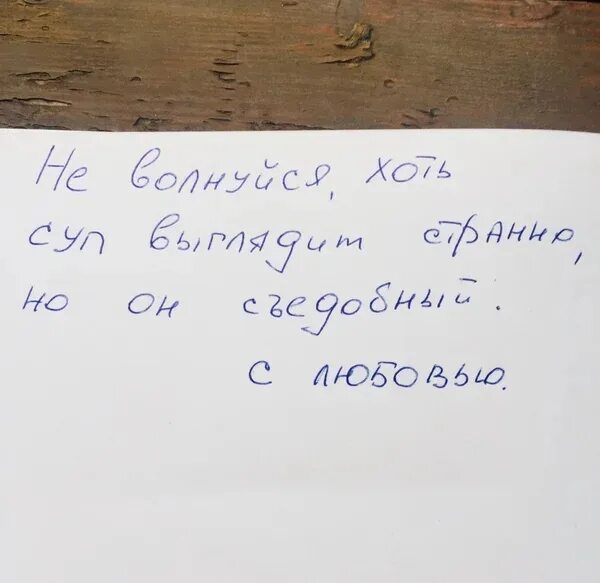 Не волнуйся, хоть
суп выглядит странно,
но он съедобный.
с любовью.